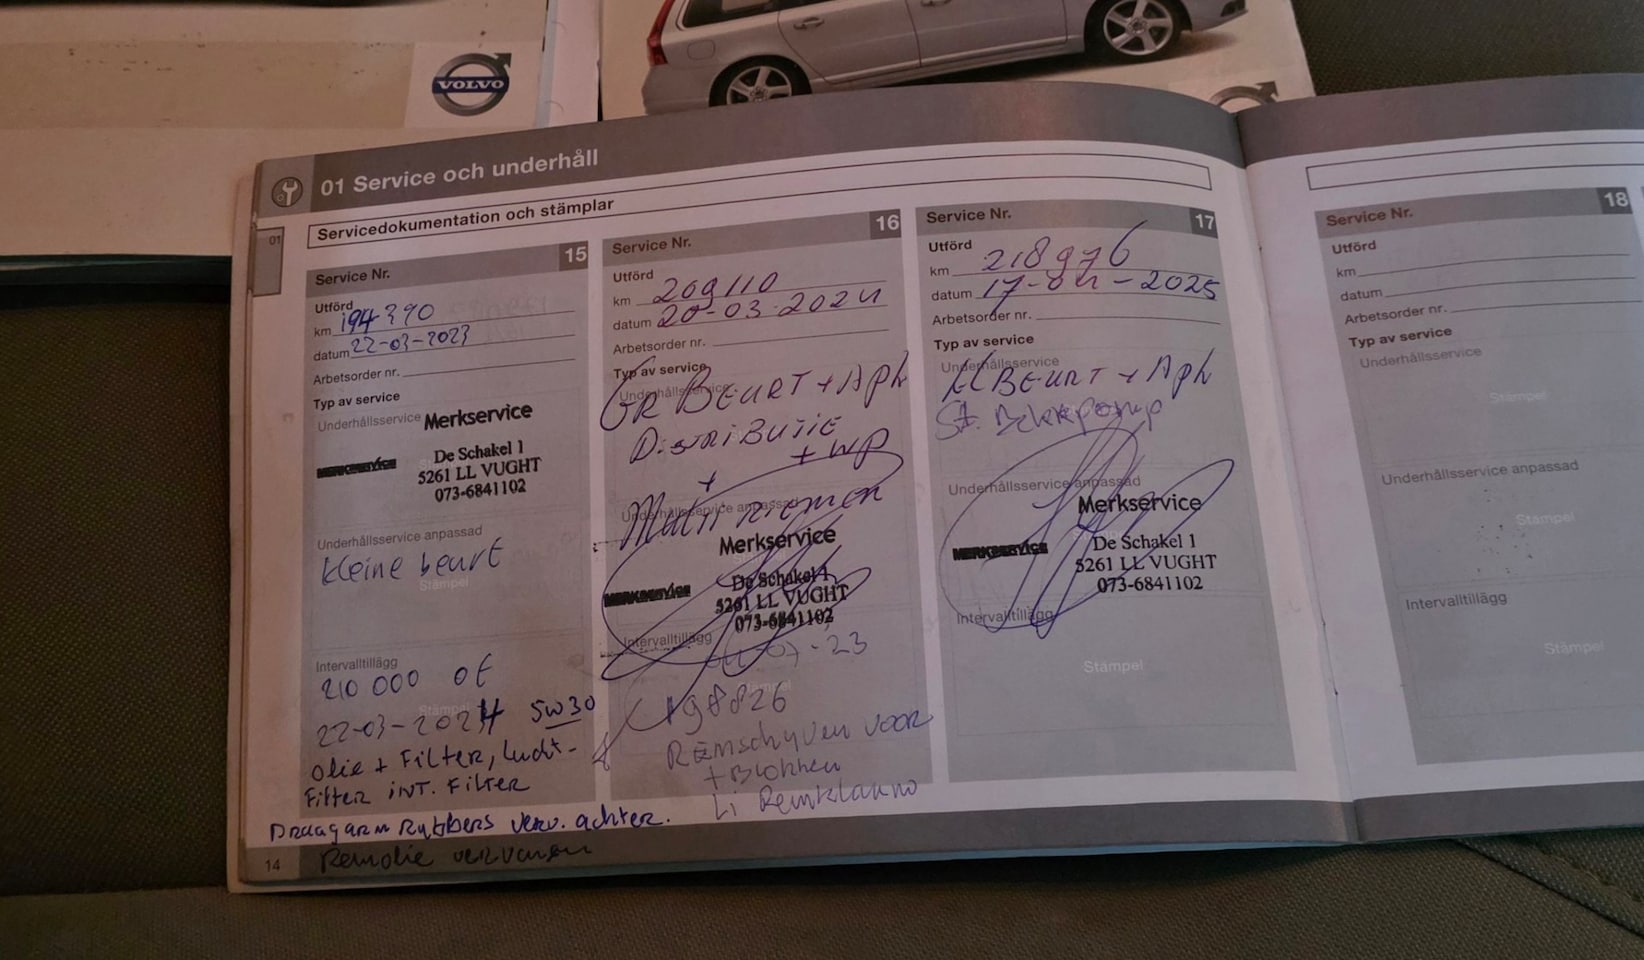 VOLVO
01 Service och underhåll
01
Servicedokumentation och stämplar
Service Nr. 15
Utförd
km 194390
datum 22-03-2023
Arbetsorder nr.
Typ av service
Underhållsservice
Merkservice
MERKSERVICE
De Schakel 1
5261 LL VUGHT
073-6841102
Underhållsservice anpassad
Kleine beurt
Stämpel
Intervalltillägg
210 000 of
Stämpel
22-03-2024 5W30
olie + Filter, Lucht-
Filter INT. Filter
Draagarm Rubbers verv. achter.
Remolie vervangen
14
Service Nr. 16
Utförd
km 209110
datum 20-03-2024
Arbetsorder nr.
Typ av service
Underhållsservice
GR BEURT + APK
DISTRIBUTIE
+ WP
+
Multi RIEMEN
Underhållsservice anpassad
Merkservice
MERKSERVICE
De Schakel 1
5261 LL VUGHT
073-6841102
Intervalltillägg
07-23
198826
REMschyven voor
+ Blokken
Li Remklauw
Service Nr. 17
Utförd
km 218976
datum 17-04-2025
Arbetsorder nr.
Typ av service
Underhållsservice
KL BEURT + APK
Underhållsservice anpassad
Merkservice
MERKSERVICE
De Schakel 1
5261 LL VUGHT
073-6841102
Intervalltillägg
Stämpel
Service Nr. 18
Utförd
km
datum
Arbetsorder nr.
Typ av service
Underhållsservice
Stämpel
Underhållsservice anpassad
Stämpel
Intervalltillägg
Stämpel